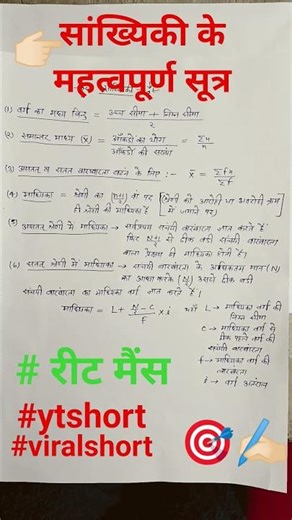 सांख्यिकी के
महत्वपूर्ण सूत्र
(1) वर्ग का मध्य बिन्दु = उच्च सीमा + निम्न सीमा / 2
(2) समान्तर माध्य (x̄) = आँकड़ों का योग / आँकड़ों की संख्या = Σx / n
(3) असतत् व सतत् बारम्बारता बंटन के लिए :- x̄ = Σfx / Σf
(4) माध्यिका = श्रेणी का वां पद [श्रेणी को आरोही या अवरोही क्रम
में जमाने पर]
(5) असतत् श्रेणी में माध्यिका → सर्वप्रथम संचयी बारम्बारता ज्ञात करते हैं
फिर N/2 से ठीक बड़ी संचयी बारम्बारता
(6) सतत् श्रेणी में माध्यिका → संचयी बारम्बारता के अधिकतम मान (N)
का आधा करके (N/2) उससे ठीक बड़ी
संचयी बारम्बारता का माध्यिका वर्ग ज्ञात करते हैं।
माध्यिका = L + N/2 - C / f × i
जहाँ L → माध्यिका वर्ग की
निम्न सीमा
C → माध्यिका वर्ग से
ठीक पहले वर्ग की
संचयी बारम्बारता
f → माध्यिका वर्ग की
बारम्बारता
i → वर्ग अन्तराल
# रीट मैंस
#ytshort
#viralshort